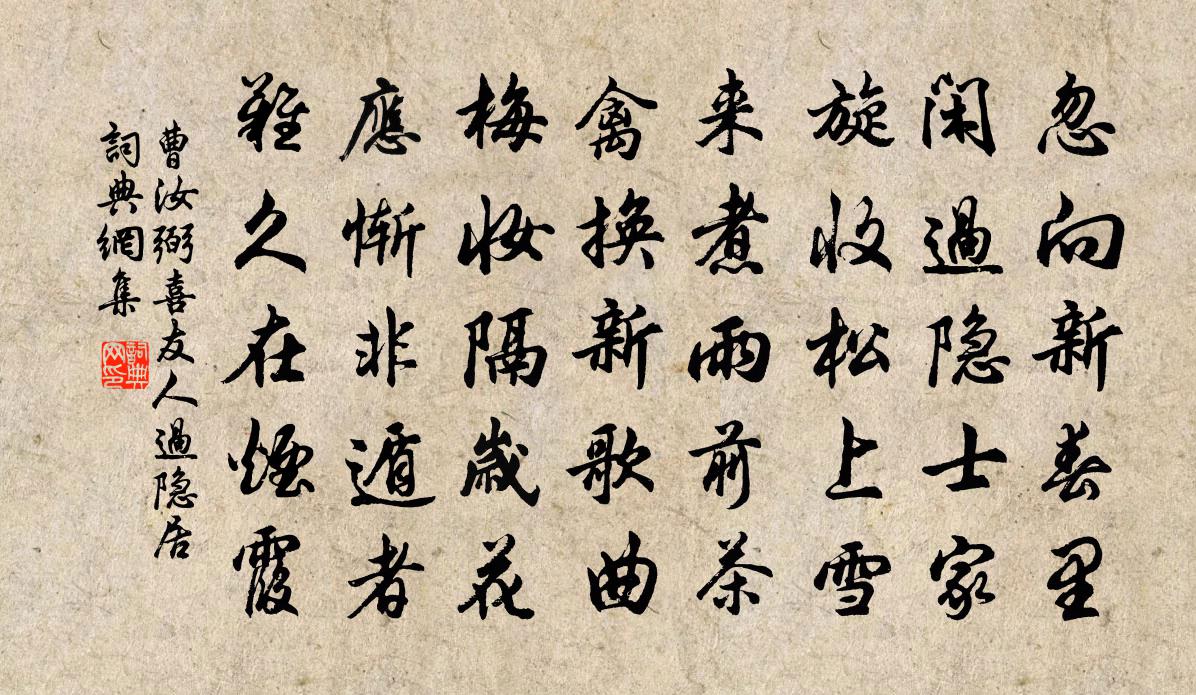 忽向新春里
闲過隐士家
旋收松上雪
来煮雨前茶
禽换新歌曲
梅妆隔歲花
應惭非遁者
難久在煙霞
曹汝弼喜友人過隐居
詞典網集
詞典
网印